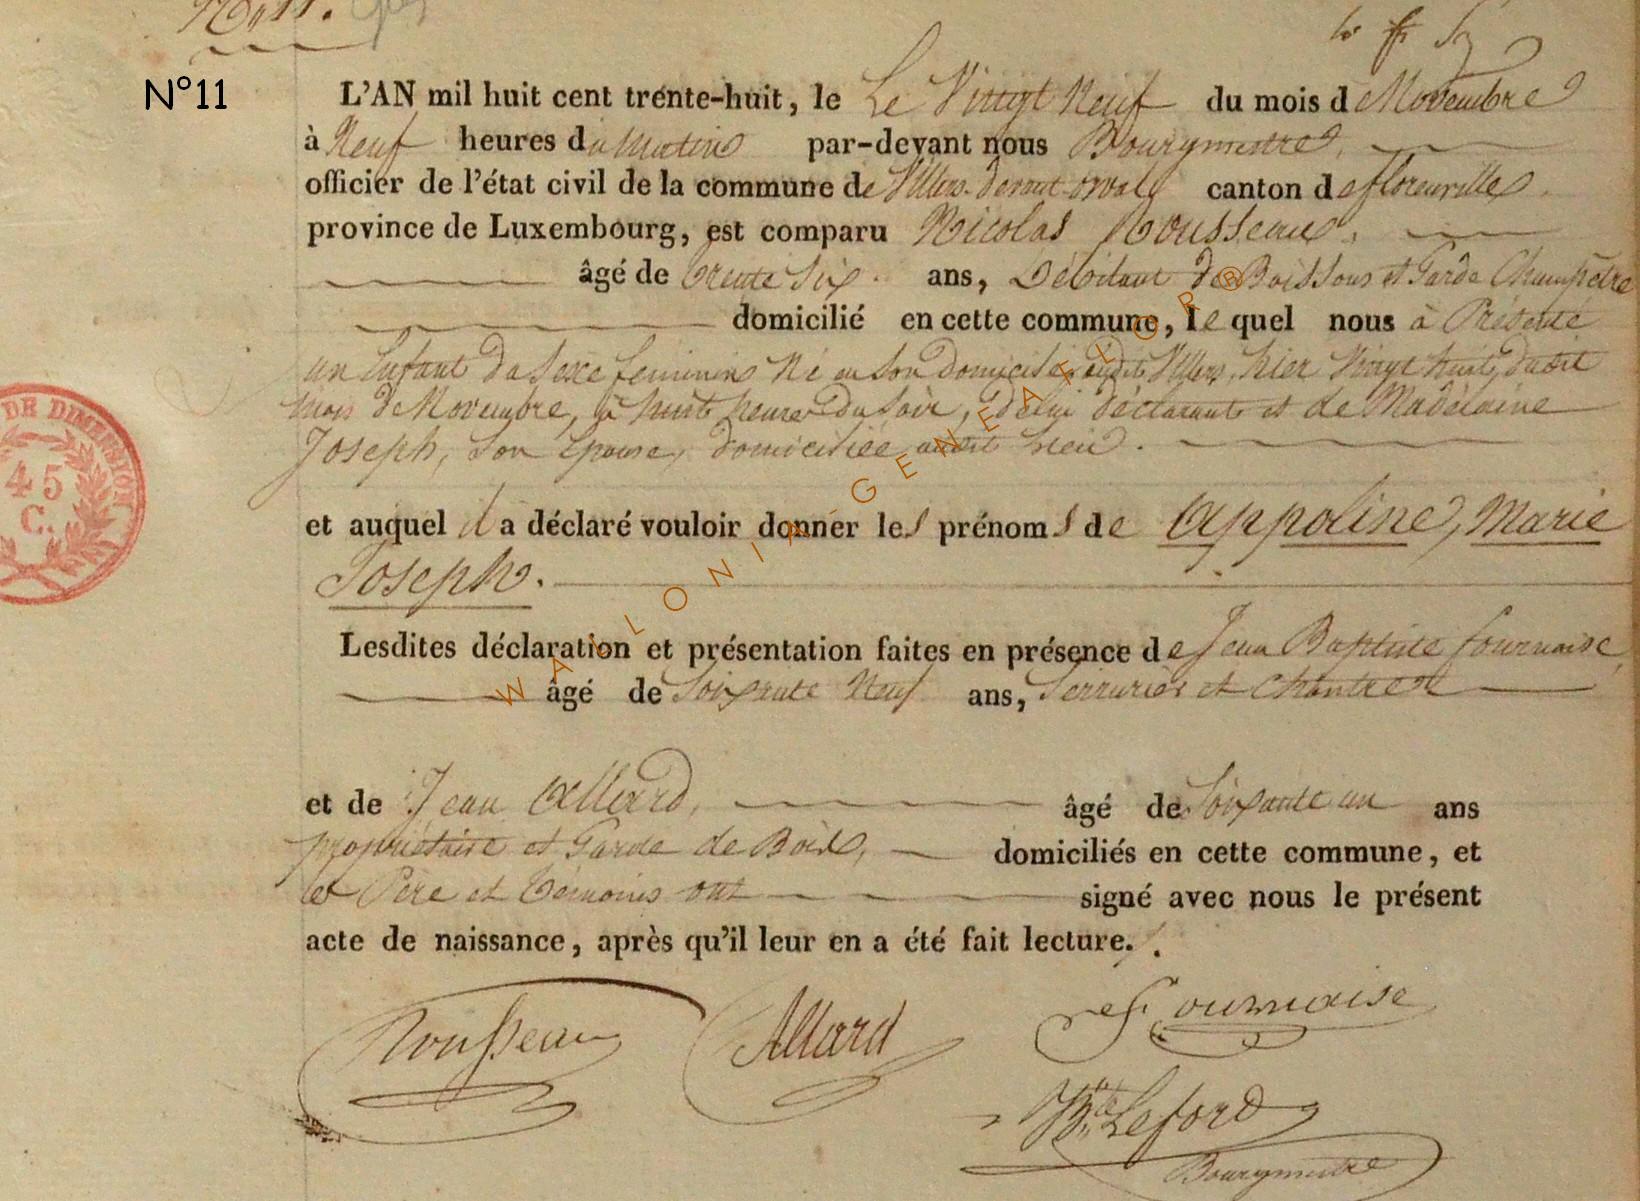 N°11.
N°11
L'AN mil huit cent trente-huit, le Le Vingt Neuf du mois de Novembre
à Neuf heures du Matin par-devant nous Bourgmestre,
officier de l'état civil de la commune de Villers devant orval canton de florenville
province de Luxembourg, est comparu Nicolas Rousseau,
âgé de trente Six ans, Débitant de Boissons et Garde Champêtre
domicilié en cette commune, le quel nous à Présenté
un Enfant du Sexe feminin Né en son domicile audit Villers, hier Vingt huit, dudit
mois de Novembre, à huit heures du Soir, de lui déclarant et de Madelaine
Joseph, son Epouse, domiciliée audit lieu.
et auquel il a déclaré vouloir donner les prénoms de Appoline, Marie
Joseph.
Lesdites déclaration et présentation faites en présence de Jean Baptiste fournaise,
âgé de Soixante Neuf ans, Serrurier et Chantre
et de Jean Allard, âgé de Soixante un ans
propriétaire et Garde de Bois, domiciliés en cette commune, et
les Père et témoins ont signé avec nous le présent
acte de naissance, après qu'il leur en a été fait lecture.
Rousseau Allard Fournaise
Leford
Bourgmestre
DE DIMENSION
45
C.
WALLONIA-GENEAFLOR®